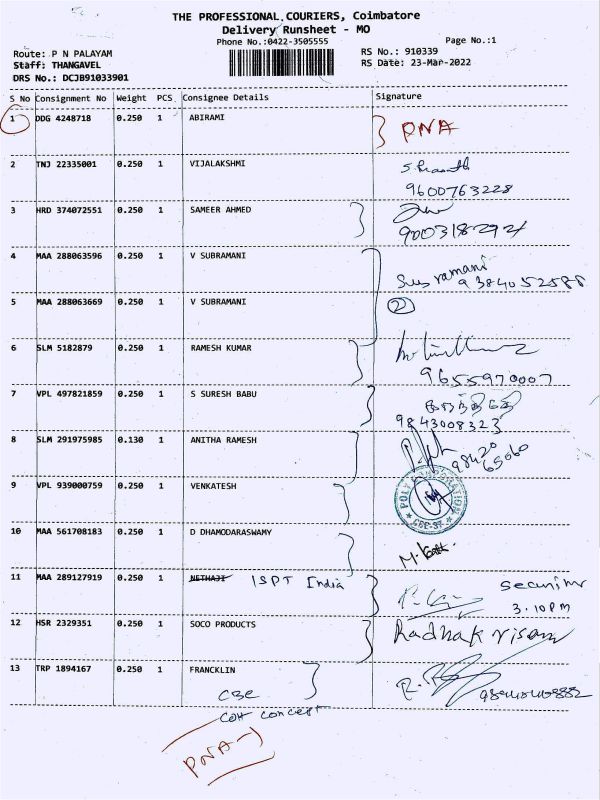 THE PROFESSIONAL COURIERS, Coimbatore
Delivery Runsheet - MO
Phone No.:0422-3505555
Page No.:1
Route: P N PALAYAM
RS No.: 910339
Staff: THANGAVEL
RS Date: 23-Mar-2022
DRS No.: DCJB91033901
S No Consignment No Weight PCS Consignee Details Signature
1 DDG 4248718 0.250 1 ABIRAMI PNA
2 TNJ 22335001 0.250 1 VIJALAKSHMI
9600763228
3 HRD 374072551 0.250 1 SAMEER AHMED
9003187294
4 MAA 288063596 0.250 1 V SUBRAMANI
9384052588
5 MAA 288063669 0.250 1 V SUBRAMANI 2
6 SLM 5182879 0.250 1 RAMESH KUMAR
9655970007
7 VPL 497821859 0.250 1 S SURESH BABU
9843008323
8 SLM 291975985 0.130 1 ANITHA RAMESH
9 VPL 939000759 0.250 1 VENKATESH
10 MAA 561708183 0.250 1 D DHAMODARASWAMY
11 MAA 289127919 0.250 1 NETHAJI ISPT India
3.10PM
12 HSR 2329351 0.250 1 SOCO PRODUCTS Radhakrisan
13 TRP 1894167 0.250 1 FRANCKLIN
CBE
COH concept
PNA-1